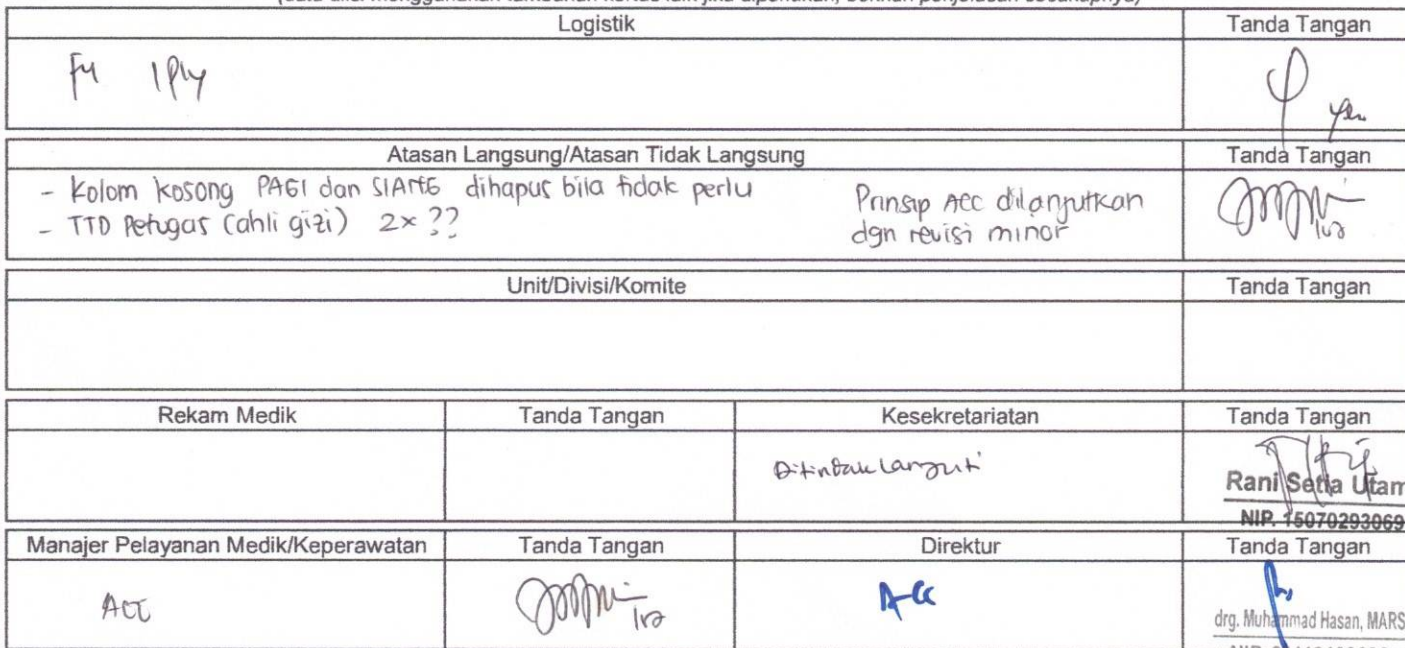 Logistik Tanda Tangan
F4 1 Ply
Yen
Atasan Langsung/Atasan Tidak Langsung Tanda Tangan
- Kolom kosong PAGI dan SIANG dihapus bila tidak perlu
- TTD Petugas (ahli gizi) 2x ??
Prinsip Acc dilanjutkan
dgn revisi minor
Unit/Divisi/Komite Tanda Tangan
Rekam Medik Tanda Tangan Kesekretariatan Tanda Tangan
Ditindak lanjuti
Rani Setia Utam
NIP. 15070293069
Manajer Pelayanan Medik/Keperawatan Tanda Tangan Direktur Tanda Tangan
ACC
Acc
drg. Muhammad Hasan, MARS